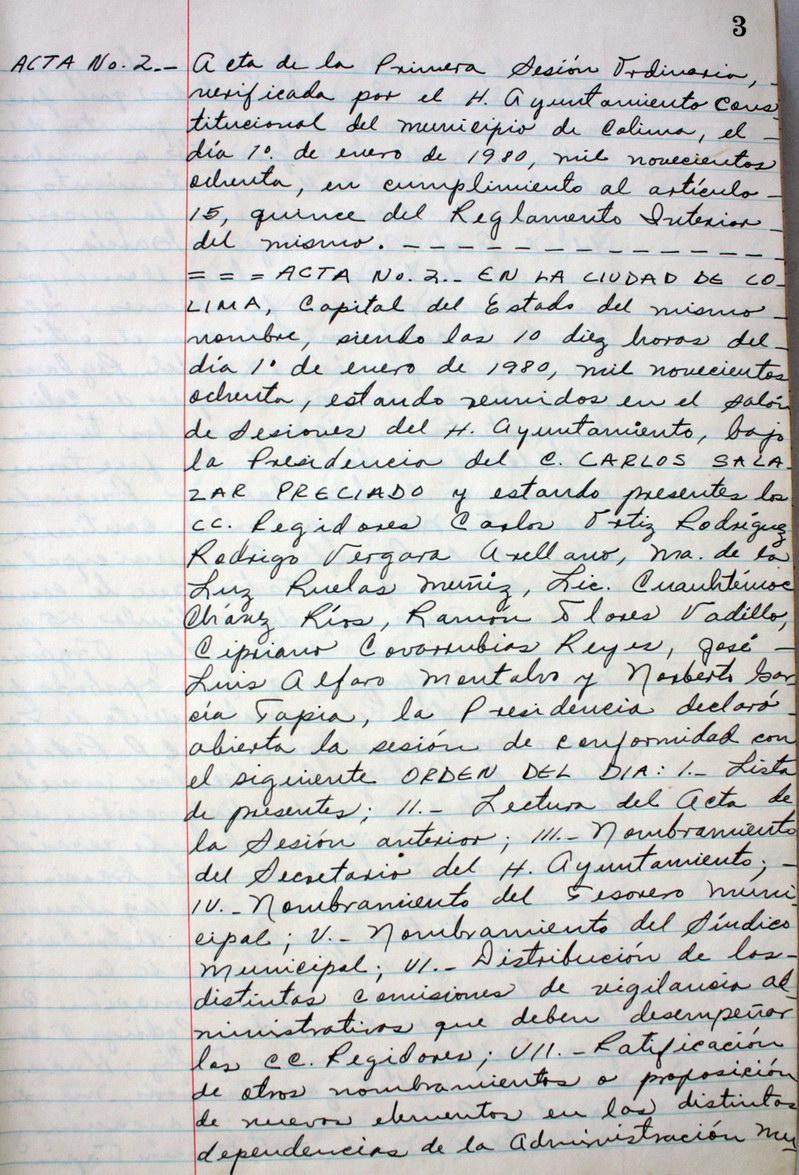 3
ACTA No. 2.- Acta de la Primera Sesión Ordinaria, -
verificada por el H. Ayuntamiento Cons
titucional del municipio de Colima, el -
día 1º. de enero de 1980, mil novecientos
ochenta, en cumplimiento al artículo -
15, quince del Reglamento Interior
del mismo. - - - - - - - - - - - - - -
= = = ACTA No. 2.- EN LA CIUDAD DE CO-
LIMA, Capital del Estado del mismo -
nombre, siendo las 10 diez horas del -
día 1º de enero de 1980, mil novecientos
ochenta, estando reunidos en el salón
de Sesiones del H. Ayuntamiento, bajo
la Presidencia del C. CARLOS SALA-
ZAR PRECIADO y estando presentes los
CC. Regidores Carlos Ortiz Rodríguez
Rodrigo Vergara Arellano, Ma. de la
Luz Ruelas Muñiz, Lic. Cuauhtémoc
Chávez Ríos, Ramón Flores Vadillo,
Cipriano Covarrubias Reyes, José -
Luis Alfaro Montalvo y Norberto Gar
cía Tapia, la Presidencia declaró -
abierta la sesión de conformidad con
el siguiente ORDEN DEL DIA: I.- Lista
de presentes; II.- Lectura del Acta de
la Sesión anterior; III.- Nombramiento
del Secretario del H. Ayuntamiento; -
IV.- Nombramiento del Tesorero Muni-
cipal; V.- Nombramiento del Síndico
Municipal; VI.- Distribución de las -
distintas Comisiones de vigilancia ad-
ministrativas que deben desempeñar
los CC. Regidores; VII.- Ratificación
de otros nombramientos o proposición
de nuevos elementos en las distintas
dependencias de la Administración Mu